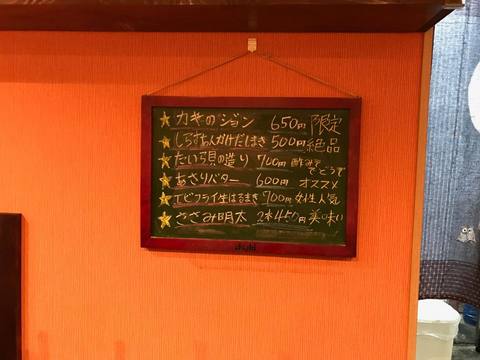 カキのジョン 650円 限定
しらすあんかけだしまき 500円 絶品
たいら貝の造り 700円 酢みそでどうぞ
あさりバター 600円 オススメ
エビフライ生はるまき 700円 女性人気
ささみ明太 2本450円 美味い
Asahi